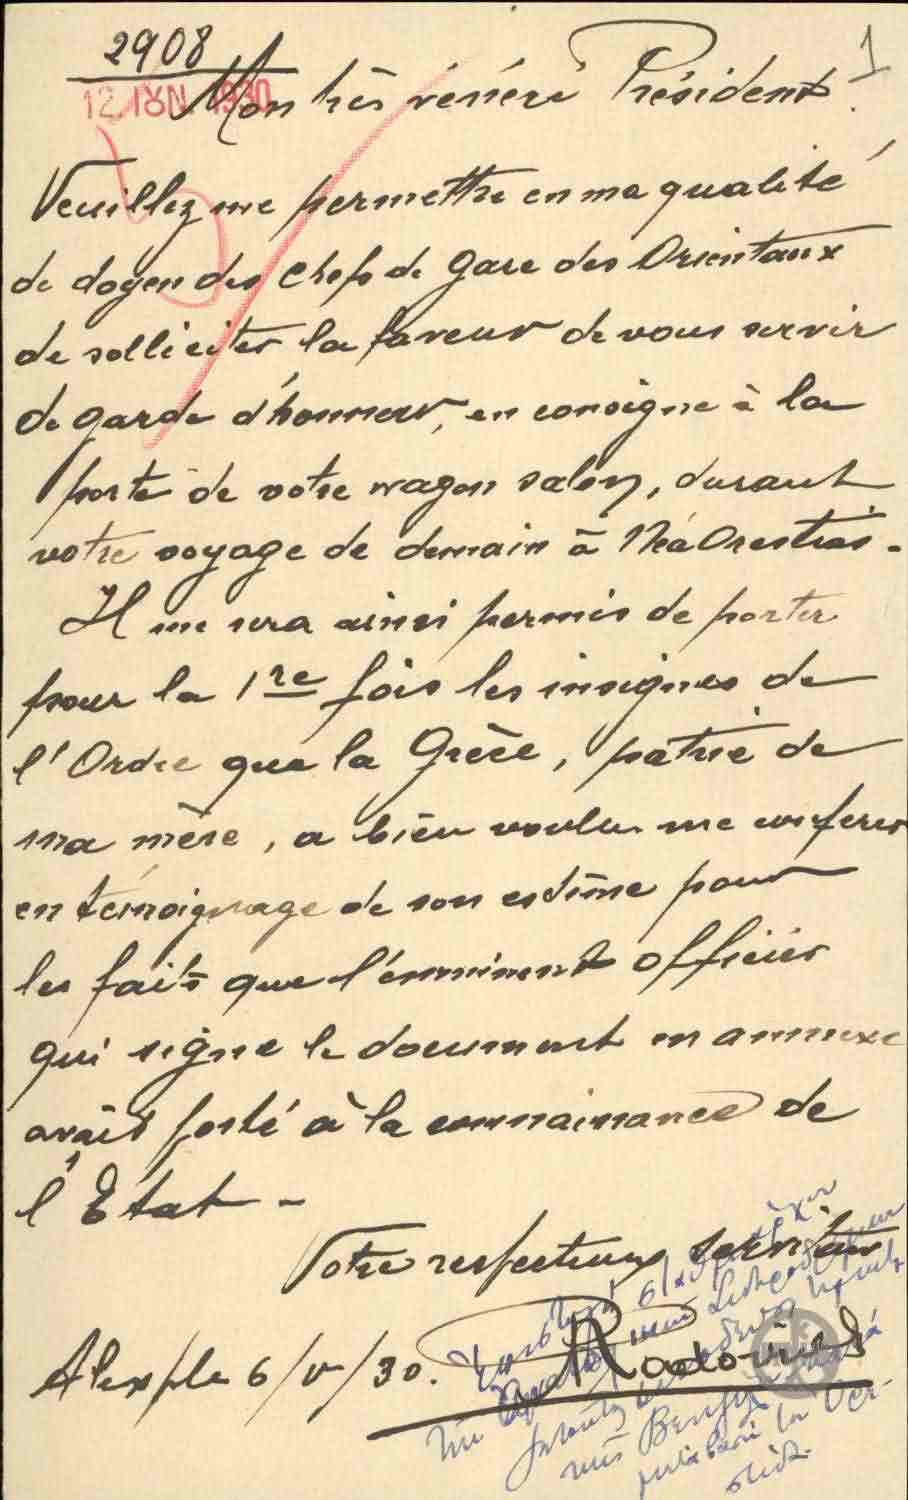 2908
1
12 ΙΟΥΝ. 1930
Mon très vénéré Président
Veuillez me permettre en ma qualité
de doyen des chefs de gare des Orientaux
de solliciter la faveur de vous servir
de garde d'honneur, en consigne à la
porte de votre wagon salon, durant
votre voyage de demain à Néa Orestias.
Il me sera ainsi permis de porter
pour la 1re fois les insignes de
l'Ordre que la Grèce, patrie de
ma mère, a bien voulu me conferer
en témoignage de son estime pour
les faits que l'emminent officier
qui signe le document en annexe
avait porté à la connaissance de
l'Etat -
Votre respectueux serviteur
Alexple 6/V/30.